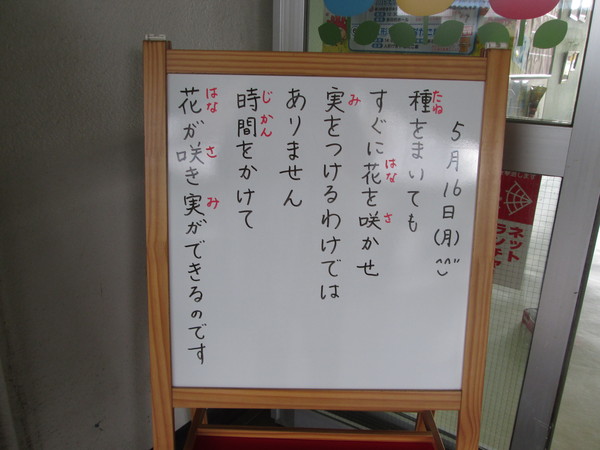 5月16日(月)^^
種をまいても
たね
すぐに花を咲かせ
はな さ
実をつけるわけでは
み
ありません
時間をかけて
じかん
花が咲き実ができるのです
はな さ み
ネット
ランチャ